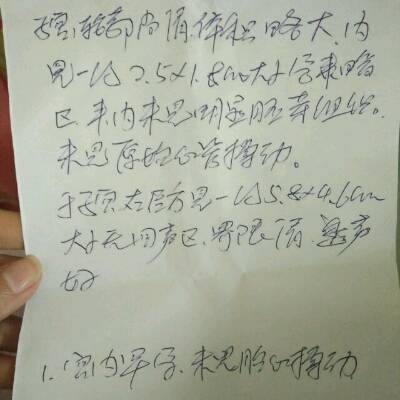 子宫轮廓尚清,体积略大,内
见一约2.5x1.8cm大小孕囊暗
区,其内未见明显胚芽组织。
未见原始心管搏动。
子宫左后方见一约5.8x4.6cm
大小无回声区,界限清,透声
好
1.宫内早孕,未见胎心搏动